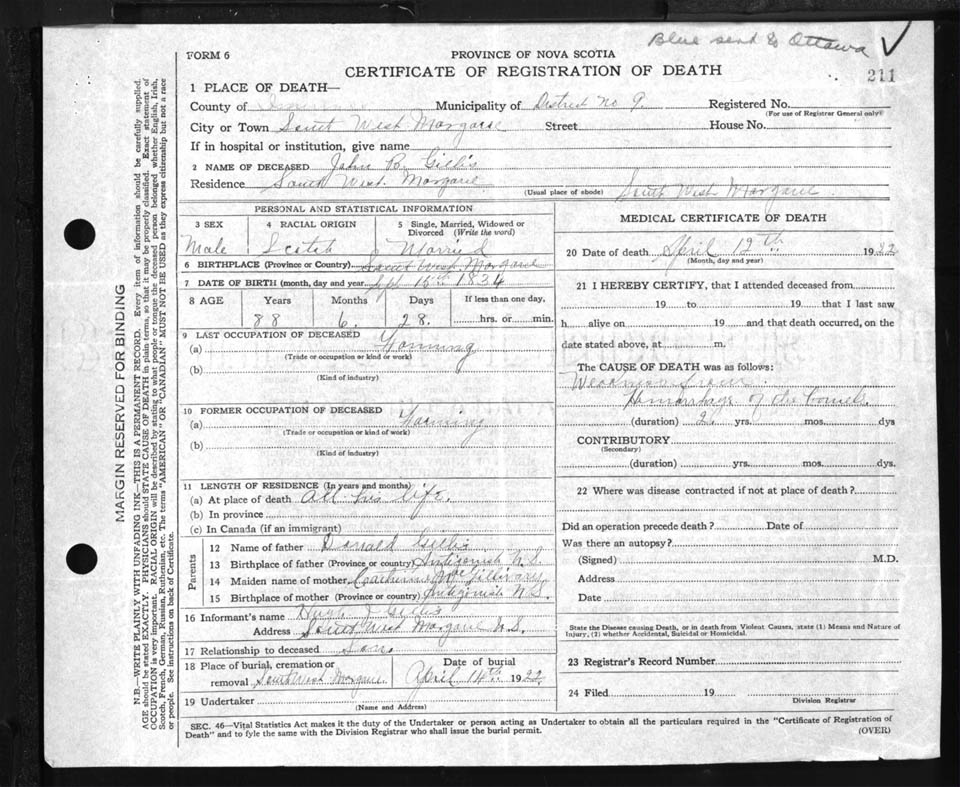 Blue send to Ottawa
FORM 6
PROVINCE OF NOVA SCOTIA
CERTIFICATE OF REGISTRATION OF DEATH
211
1 PLACE OF DEATH—
County of Inverness Municipality of District No 9. Registered No.
(For use of Registrar General only)
City or Town South West Margaree Street House No.
If in hospital or institution, give name
2 NAME OF DECEASED John B. Gillis
Residence South West Margaree (Usual place of abode) South West Margaree
PERSONAL AND STATISTICAL INFORMATION
3 SEX 4 RACIAL ORIGIN 5 Single, Married, Widowed or Divorced (Write the word)
Male Scotch Married
6 BIRTHPLACE (Province or Country) South West Margaree
7 DATE OF BIRTH (month, day and year) Sept 15th 1834
8 AGE Years Months Days If less than one day,
88 6. 28. hrs. or min.
9 LAST OCCUPATION OF DECEASED
(a) Farming
(Trade or occupation or kind or work)
(b)
(Kind of industry)
10 FORMER OCCUPATION OF DECEASED
(a) Farming
(Trade or occupation or kind of work)
(b)
(Kind of industry)
11 LENGTH OF RESIDENCE (In years and months)
(a) At place of death All his life.
(b) In province
(c) In Canada (if an immigrant)
Parents
12 Name of father Donald Gillis
13 Birthplace of father (Province or country) Antigonish N.S.
14 Maiden name of mother Catherine McGillivray
15 Birthplace of mother (Province or country) Antigonish N.S.
16 Informant's name Hugh J Gillis
Address South West Margaree N.S.
17 Relationship to deceased Son.
18 Place of burial, cremation or removal South West Margaree. Date of burial April 14th 1922
19 Undertaker
(Name and Address)
MEDICAL CERTIFICATE OF DEATH
20 Date of death April 12th 1922
(Month, day and year)
21 I HEREBY CERTIFY, that I attended deceased from
19 to 19 that I last saw
h alive on 19 and that death occurred, on the
date stated above, at m.
The CAUSE OF DEATH was as follows:
Weakness from
Hemorrhage of the bowels.
(duration) 2. yrs. mos. dys
CONTRIBUTORY
(Secondary)
(duration) yrs. mos. dys.
22 Where was disease contracted if not at place of death?
Did an operation precede death? Date of
Was there an autopsy?
(Signed) M.D.
Address
Date
State the Disease causing Death, or in death from Violent Causes, state (1) Means and Nature of
Injury, (2) whether Accidental, Suicidal or Homicidal.
23 Registrar's Record Number
24 Filed 19
Division Registrar
SEC. 46—Vital Statistics Act makes it the duty of the Undertaker or person acting as Undertaker to obtain all the particulars required in the "Certificate of Registration of
Death" and to fyle the same with the Division Registrar who shall issue the burial permit. (OVER)
MARGIN RESERVED FOR BINDING
N.B.—WRITE PLAINLY WITH UNFADING INK—THIS IS A PERMANENT RECORD. Every item of information should be carefully supplied.
AGE should be stated EXACTLY. PHYSICIANS should STATE CAUSE OF DEATH in plain terms, so that it may be properly classified. Exact statement of
OCCUPATION is very important. RACIAL ORIGIN will be described by stating to what people or tongue the deceased person belonged whether English, Irish,
Scotch, French, German, Russian, Ruthenian, etc. The terms "AMERICAN" OR "CANADIAN" MUST NOT BE USED as they express citizenship but not a race
or people. See instructions on back of Certificate.